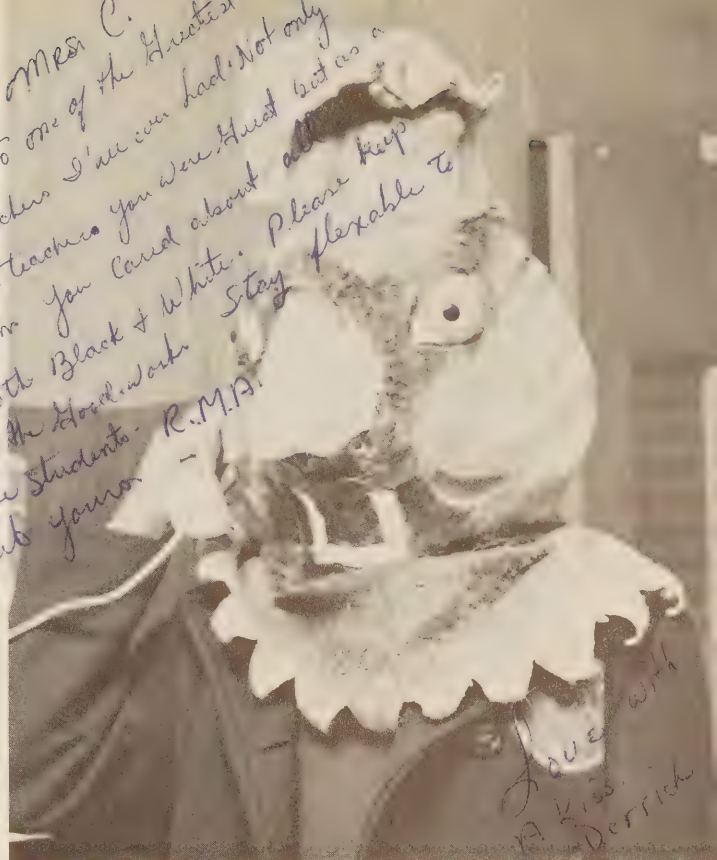 Mrs C.
o one of the Greatest
chers I've ever had. Not only
teachers you were Great but as a
you Cared about all
th Black & White. Please keep
the Good works Stay flexable to
e Students. R.M.A.
yours
Love with
A Kiss.
Derrick